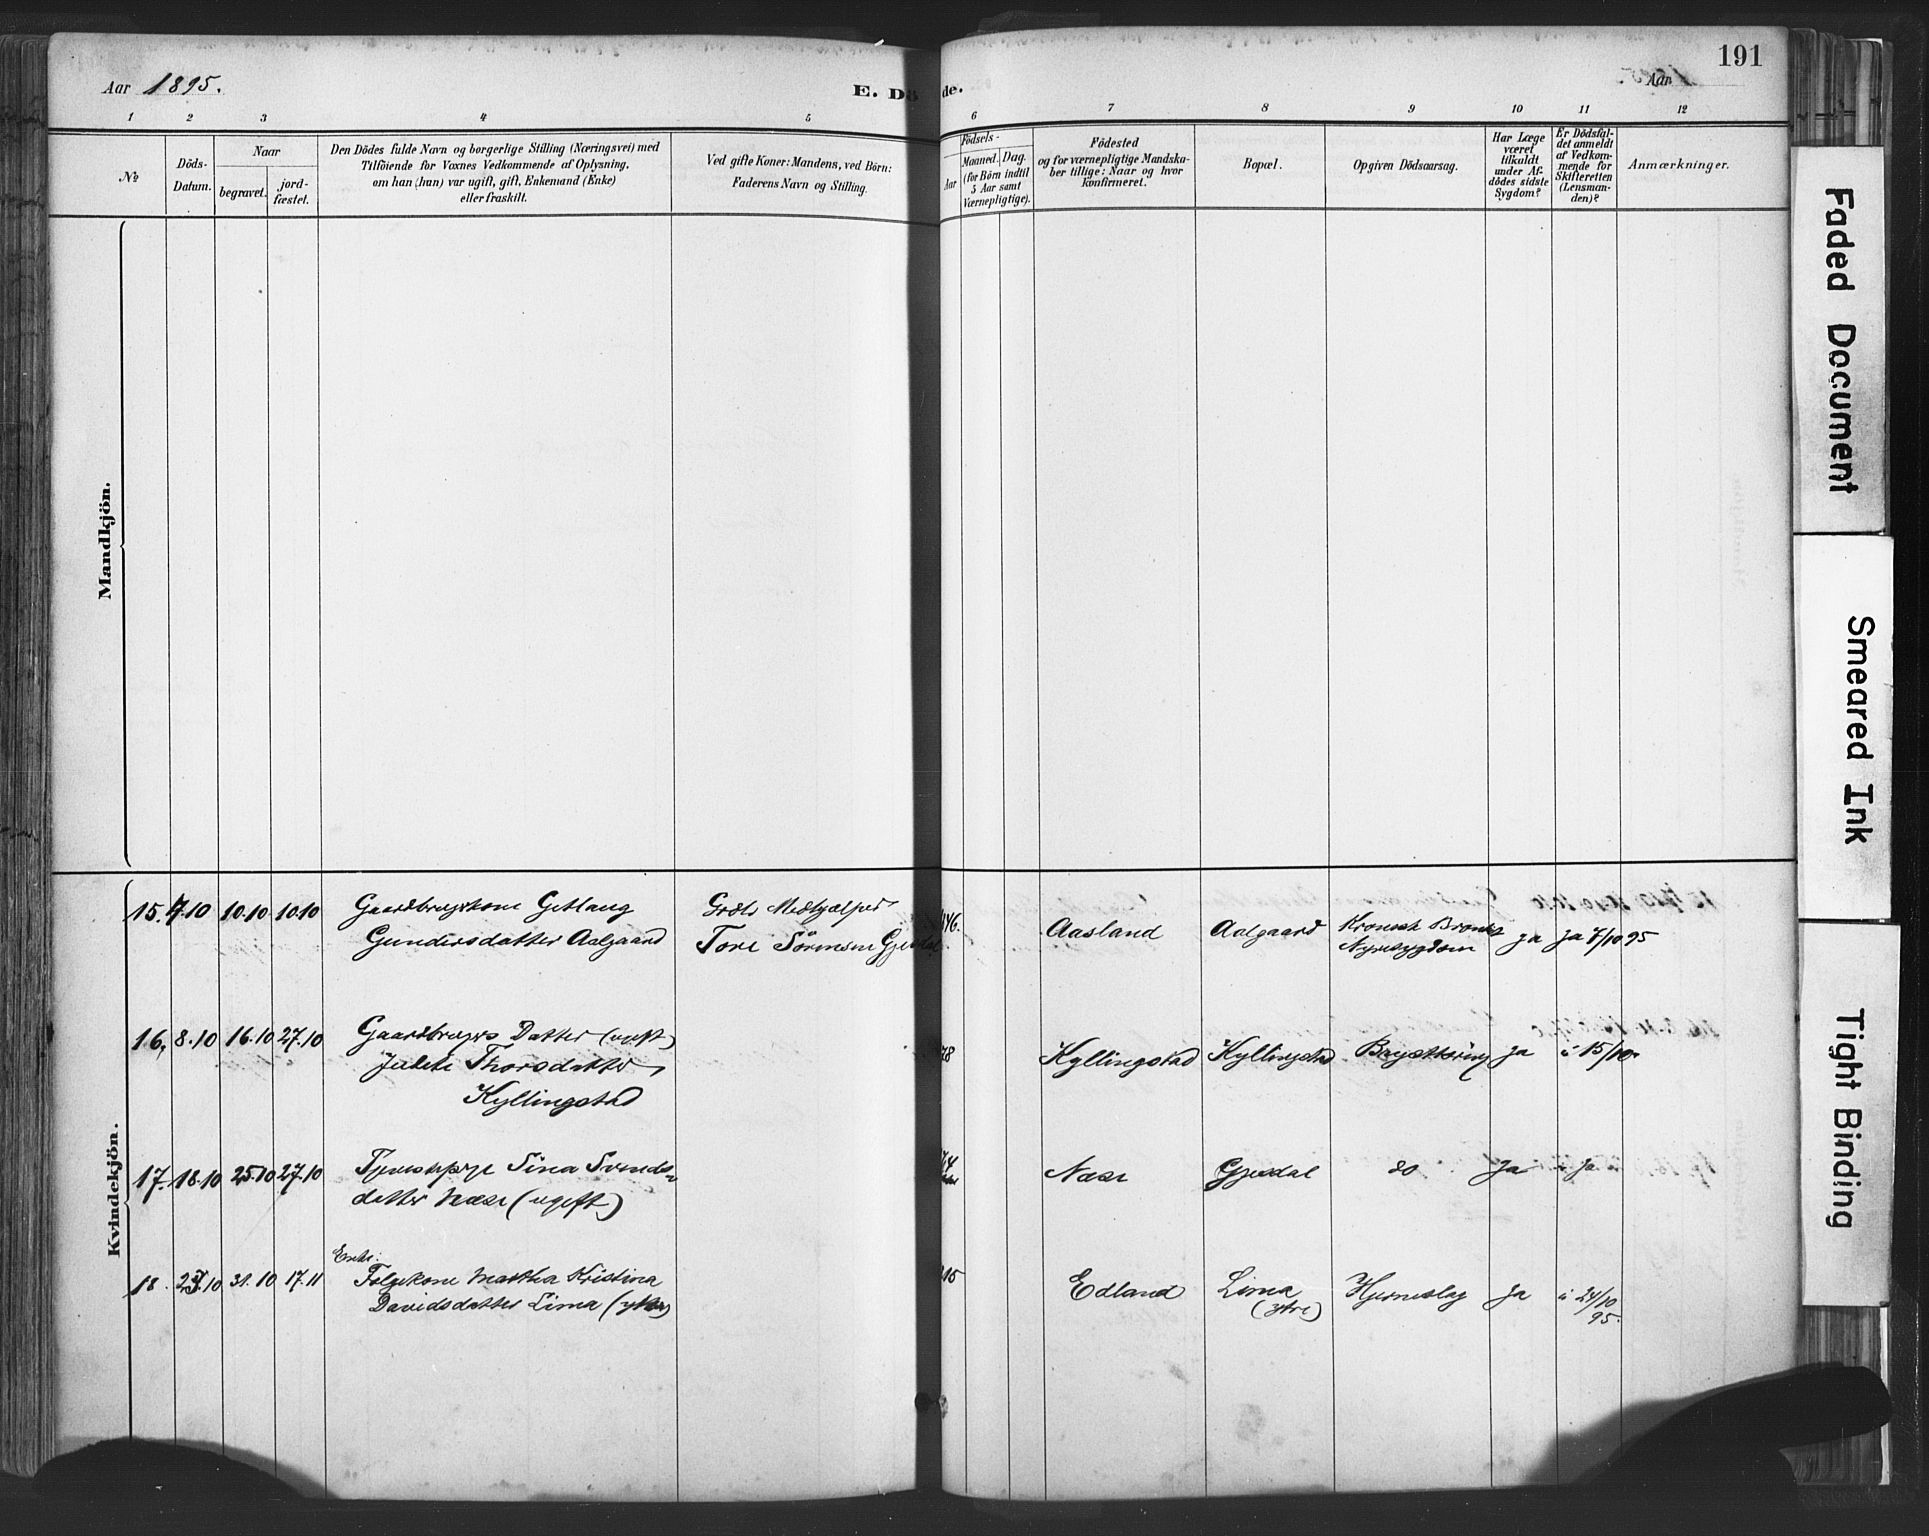 191
Aar 1895.
E. Dö de.
Aar
1 2 3 4 5 6 7 8 9 10 11 12
№
Döds-
Datum.
Naar
begravet.
jord-
fæstet.
Den Dödes fulde Navn og borgerlige Stilling (Næringsvei) med
Tilföiende for Voxnes Vedkommende af Oplysning,
om han (hun) var ugift, gift, Enkemand (Enke)
eller fraskilt.
Ved gifte Koner: Mandens, ved Börn:
Faderens Navn og Stilling.
Födsels-
Aar
Maaned. Dag.
(for Börn indtil
5 Aar samt
Værnepligtige).
Födested
og for værnepligtige Mandska-
ber tillige: Naar og hvor
konfirmeret.
Bopæl.
Opgiven Dödsaarsag.
Har Læge
været
tilkaldt
under Af-
dödes sidste
Sygdom?
Er Dödsfal-
det anmeldt
af Vedkom-
mende for
Skifteretten
(Lensman-
den)?
Anmærkninger.
Mandkjön.
Kvindekjön.
15. 7.10 10.10 10.10 Gaardbrugerkone Getlaug
Gundersdatter Aalgaard
Grdbr Medhjælper
Tore Sörensen Gjesdal
46. Aasland Aalgaard Kronisk Bronk.
Nyresygdom ja Ja 7/10 95
16. 8.10 16.10 27.10 Gaardbrugers Datter (ugift)
Thorsdatter
Kyllingstad
78 Kyllingstad Kyllingstad Brysttæring ja 15/10
17. 18.10 25.10 27.10 Tjenestepige Sina Svends-
datter Næse (ugift)
74 Næse Gjesdal do Ja Ja
18. 23.10 31.10 17.11 Enke:
Folgekone Martha Kristina
Davidsdatter Lima (ytre)
15 Edland Lima
(ytre) Hjerneslag Ja 24/10
95.
Faded Document
Smeared Ink
Tight Binding